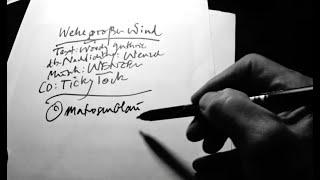 Wehe großer Wind
Text: Woody Guthrie
dt. Nachdichtung: Wenzel
Musik: WENZEL
CD: TICKY TOCK
Matrosenblau